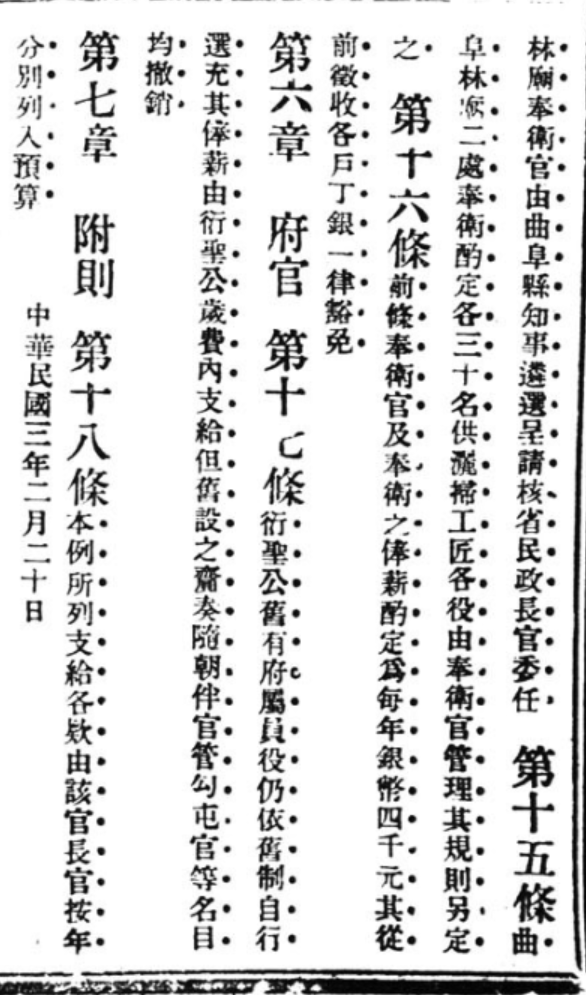 林廟奉衛官由曲阜縣知事遴選呈請核省民政長官委任　第十五條曲
阜林廟二處奉衛酌定各三十名供灑掃工匠各役由奉衛官管理其規則另定
之　第十六條前條奉衛官及奉衛之俸薪酌定爲每年銀幣四千元其從
前徵收各戶丁銀一律豁免
第六章　府官　第十七條衍聖公舊有府屬員役仍依舊制自行
選充其俸薪由衍聖公歲費內支給但舊設之齋奏隨朝伴官管勾屯官等名目
均撤銷
第七章　附則　第十八條本例所列支給各欵由該官長官按年
分別列入預算
中華民國三年二月二十日